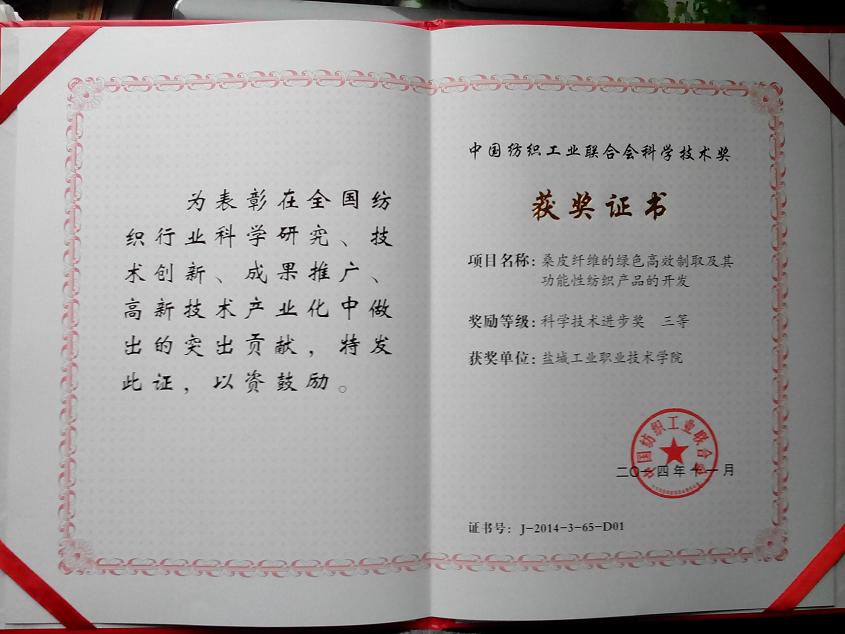 为表彰在全国纺
织行业科学研究、技
术创新、成果推广、
高新技术产业化中做
出的突出贡献，特发
此证，以资鼓励。
中国纺织工业联合会科学技术奖
获奖证书
项目名称：桑皮纤维的绿色高效制取及其
功能性纺织产品的开发
奖励等级：科学技术进步奖　三等
获奖单位：盐城工业职业技术学院
中国纺织工业联合会
二〇一四年十一月
证书号：J-2014-3-65-D01